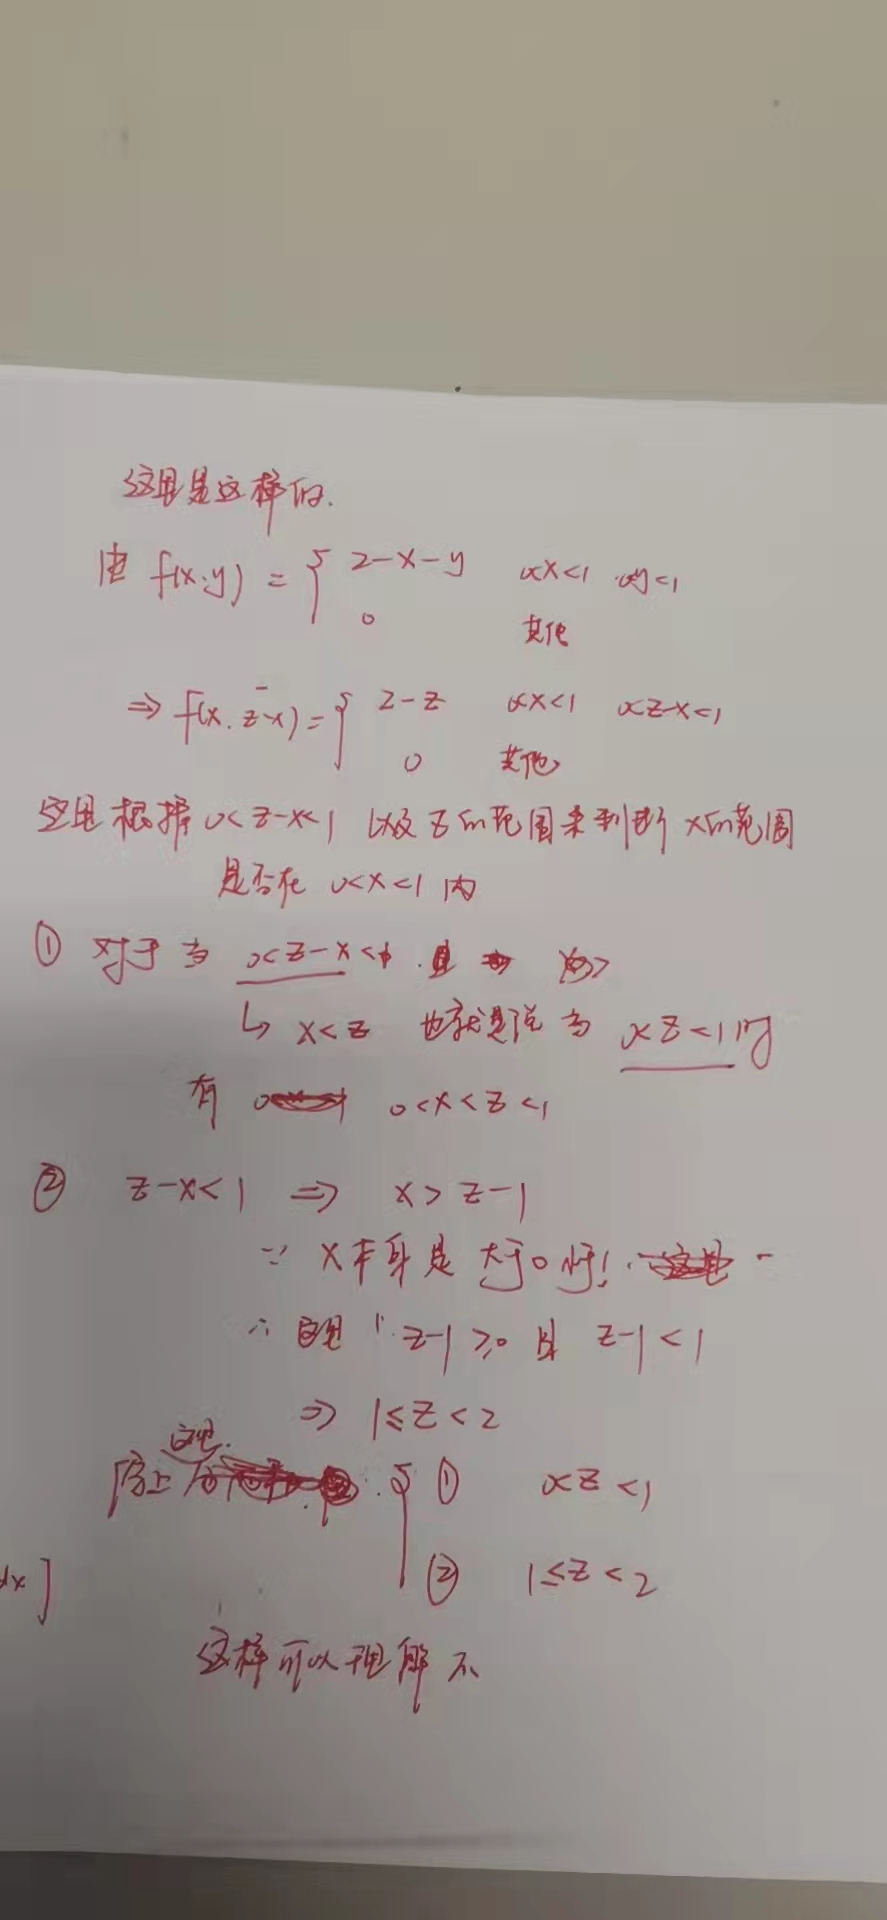 这里是这样的.
由 f(x.y) = { 2-x-y 0<x<1 0<y<1
0 其他
⇒ f(x. z-x) = { 2-z 0<x<1 0<z-x<1
0 其他
这里根据 0<z-x<1 以及 z的范围来判断 x的范围
是否在 0<x<1 内
① 对于当 0<z-x<1 . 且
↳ x<z 也就是说当 0<z<1时
有 0<x<z<1
② z-x<1 ⇒ x>z-1
∵ x本身是大于0的!
∴ 这里 z-1≥0 且 z-1<1
⇒ 1≤z<2
这里.
综上 { ① 0<z<1
② 1≤z<2
dx]
这样可以理解不